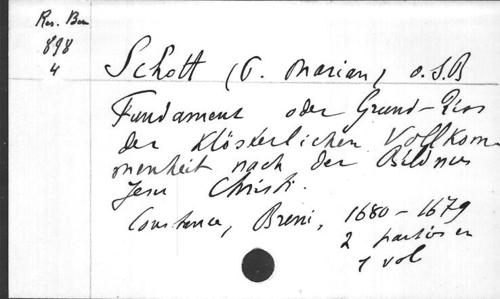 Res. Bem
898
4
Schott (P. Marian) O.S.B
Fundament oder Grund-Riss
der Klösterlichen Vollkom
menheit nach der Bildnus
Jesu Christi.
Constance, Breni, 1680-1679
2 parties en
1 vol